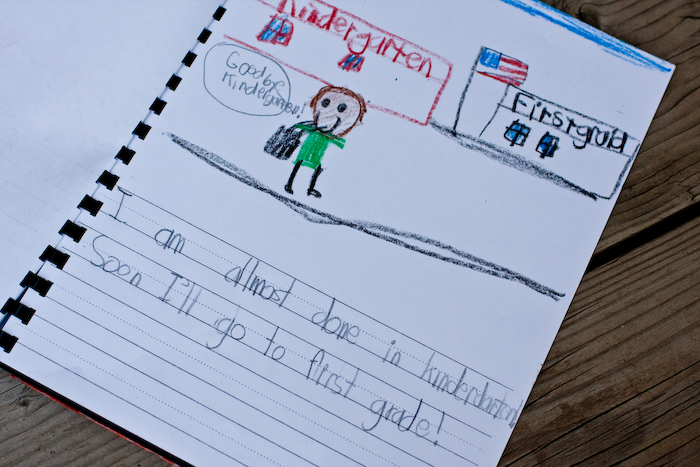 Kindergarten
Goodbye
Kindergarten!
Firstgrad
I am allmost done in kindergarten!
Soon I'll go to first grade!